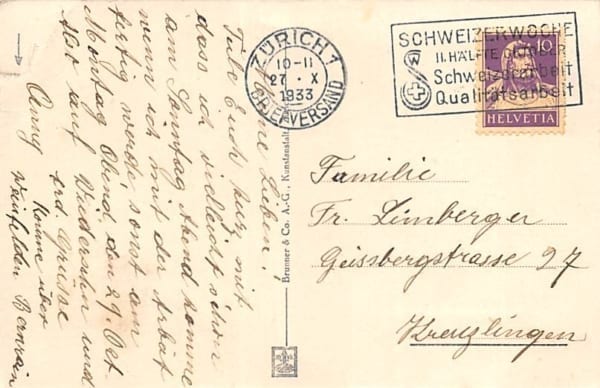 Meine Lieben!
Teile Euch kurz mit
dass ich vielleicht schon
am Sonntag Abend komme
wenn ich mit der Arbeit
fertig werde sonst am
Montag Abend, den 29. Oct.
Also auf Wiedersehn und
erd. Grüsse
Anny
Komme über
Weinfelden
ZÜRICH 1
10-11
27. X
1933
BRIEFVERSAND
SCHWEIZERWOCHE
II. HÄLFTE OKTOBER
Schweizerarbeit
Qualitätsarbeit
10
HELVETIA
Brunner & Co. A.-G., Kunstanstalt,
Familie
Fr. Limberger
Geissbergstrasse 27
Kreuzlingen